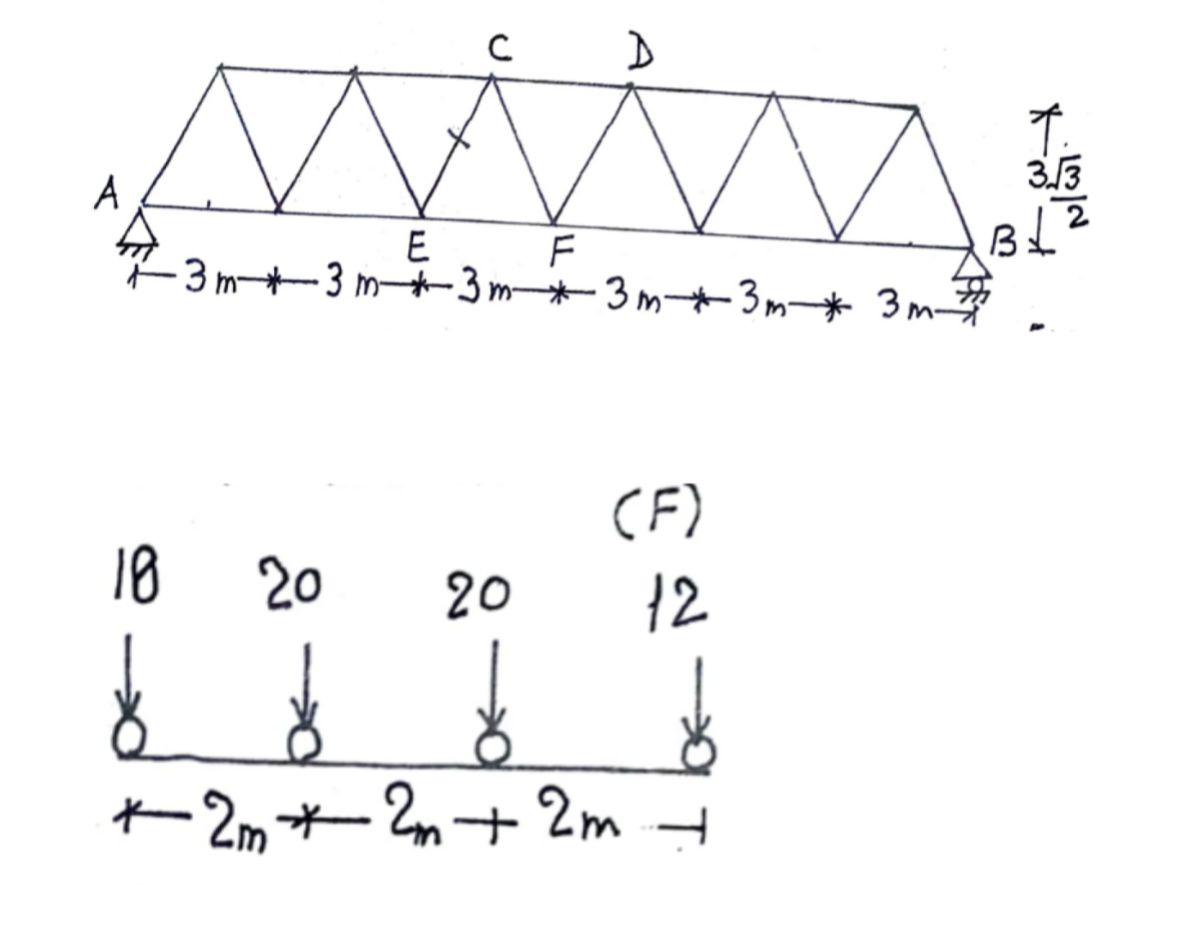 C D
A
3√3
2
B
E F
3m 3m 3m 3m 3m 3m
(F)
18 20 20 12
2m 2m 2m